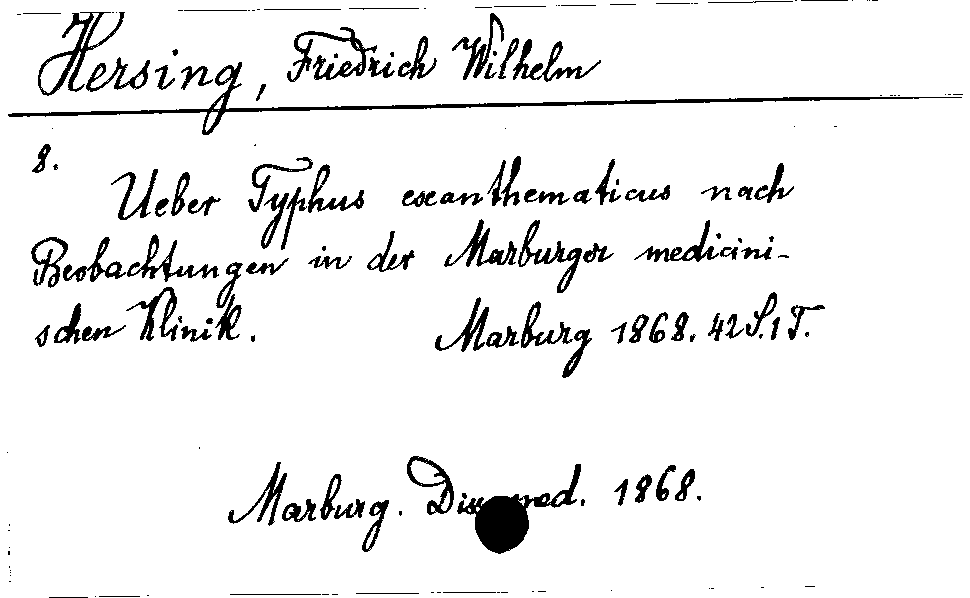 Hersing, Friedrich Wilhelm
8.
Ueber Typhus exanthematicus nach
Beobachtungen in der Marburger medicini-
schen Klinik. Marburg 1868. 42 S. 1 T.
Marburg. Diss. med. 1868.